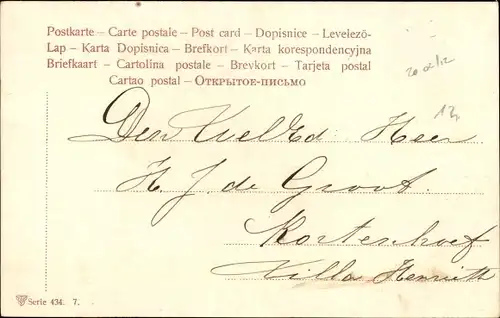 Postkarte – Carte postale – Post card – Dopisnice – Levelező-
Lap – Karta Dopisnica – Brefkort – Karta korespondencyjna
Briefkaart – Cartolina postale – Brevkort – Tarjeta postal
Cartao postal – Открытое-письмо
Den WelEd: Heer
H. J. de Groot.
Kortenhoef
Villa Henriëtt
Serie 434. 7.